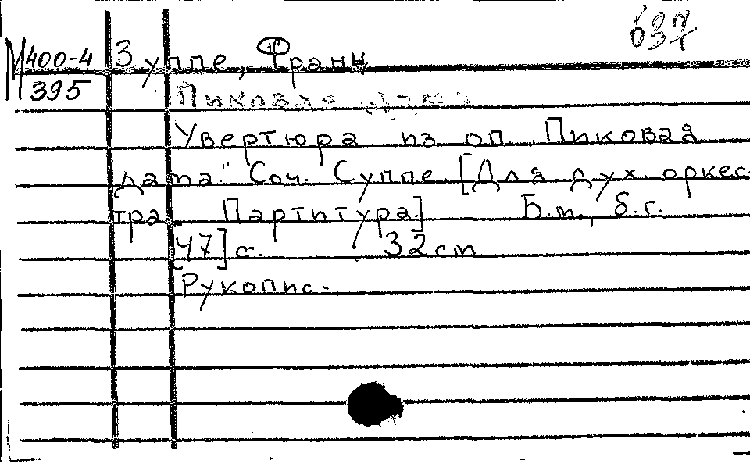 637
М400-4 Зуппе, Франц
395 Пиковая дама
Увертюра из оп. Пиковая
дама." Соч. Суппе [Для дух. оркес-
тра. Партитура] Б.м., б.г.
[47] с. 32 cm
Рукопис.